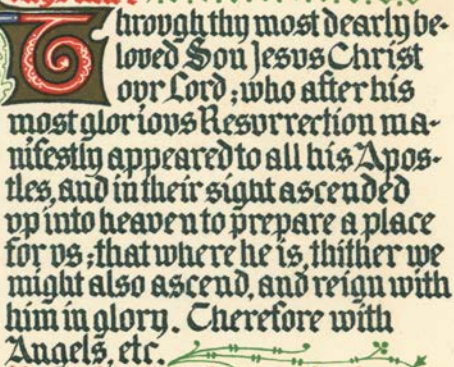 Through thy most dearly be-
loved Son Jesvs Christ
ovr Lord; who after his
most gloriovs Resvrrection ma-
nifestly appeared to all his Apos-
tles, and in their sight ascended
vp into heaven to prepare a place
for vs; that where he is, thither we
might also ascend, and reign with
him in glory. Therefore with
Angels, etc.